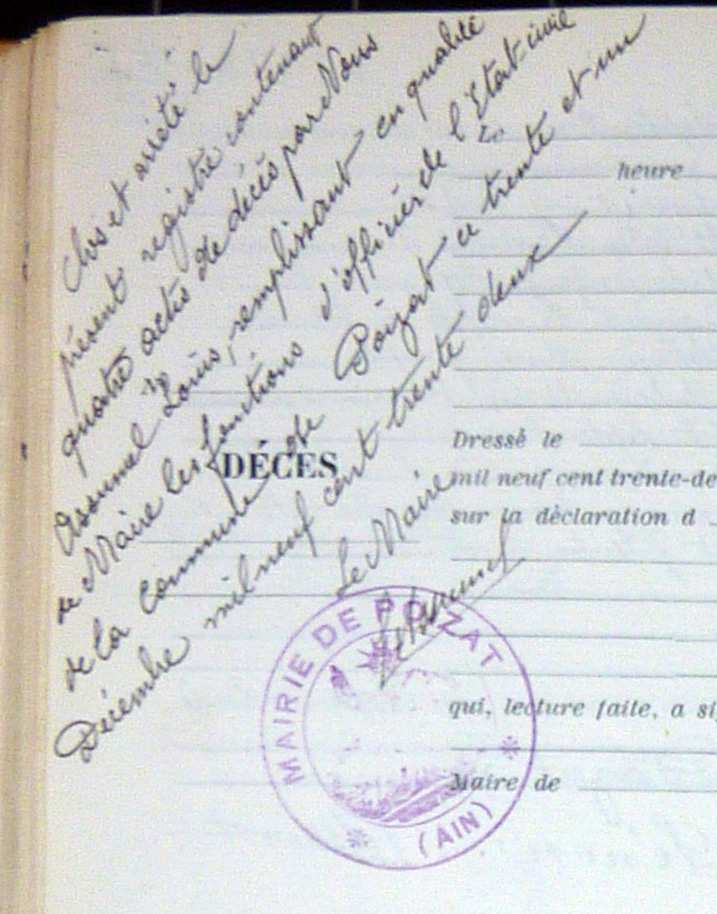 Clos et arrêté le
présent registre contenant
quatre actes de décès par Nous
Assumel Louis, remplissant en qualité
de Maire les fonctions d'officier de l'Etat-civil
de la commune de Poizat ce trente et un
Décembre mil neuf cent trente deux
Le Maire
LAssumel
DÉCÈS
Le
heure
Dressé le
mil neuf cent trente-de
sur la déclaration d
qui, lecture faite, a si
Maire de
MAIRIE DE POIZAT
(AIN)